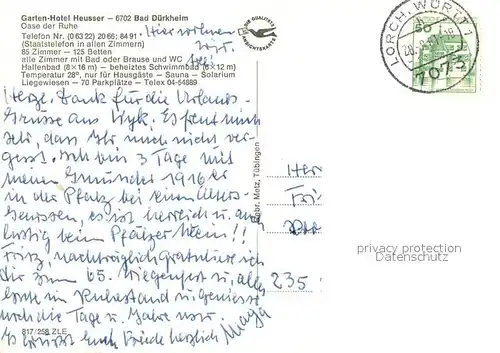 Garten-Hotel Heusser — 6702 Bad Dürkheim
Oase der Ruhe
Telefon Nr. (0 63 22) 20 66; 84 91
(Staatstelefon in allen Zimmern)
85 Zimmer — 125 Betten
alle Zimmer mit Bad oder Brause und WC
Hallenbad (8×16 m) — beheiztes Schwimmbad (6×12 m)
Temperatur 28°, nur für Hausgäste — Sauna — Solarium
Liegewiesen — 70 Parkplätze — Telex 04-54889
Hier wohnen
wir
Herzl. Dank für die Urlaubs-
Grüsse aus Wyk. Es freut mich
sehr, dass Ihr mich nicht ver-
gesst. Ich bin 3 Tage mit
meinen Gmünder 1916er
in der Pfalz bei einem Alters-
genossen, es ist herrlich u. auch
lustig beim Pfälzer Wein!!
Fritz, nachträglich gratuliere ich
Dir zum 65. Wiegenfest u. alles
Gute im Ruhestand u. geniesse
noch die Tage u. Jahre
Es grüsst Euch Beide herzlich Maga
817/258 ZLE
Gebr. Metz, Tübingen
DIE QUALITÄTS
ANSICHTSKARTE
LORCH, WÜRTT 1
7073
50
Her
Fri
235
privacy protection
Datenschutz